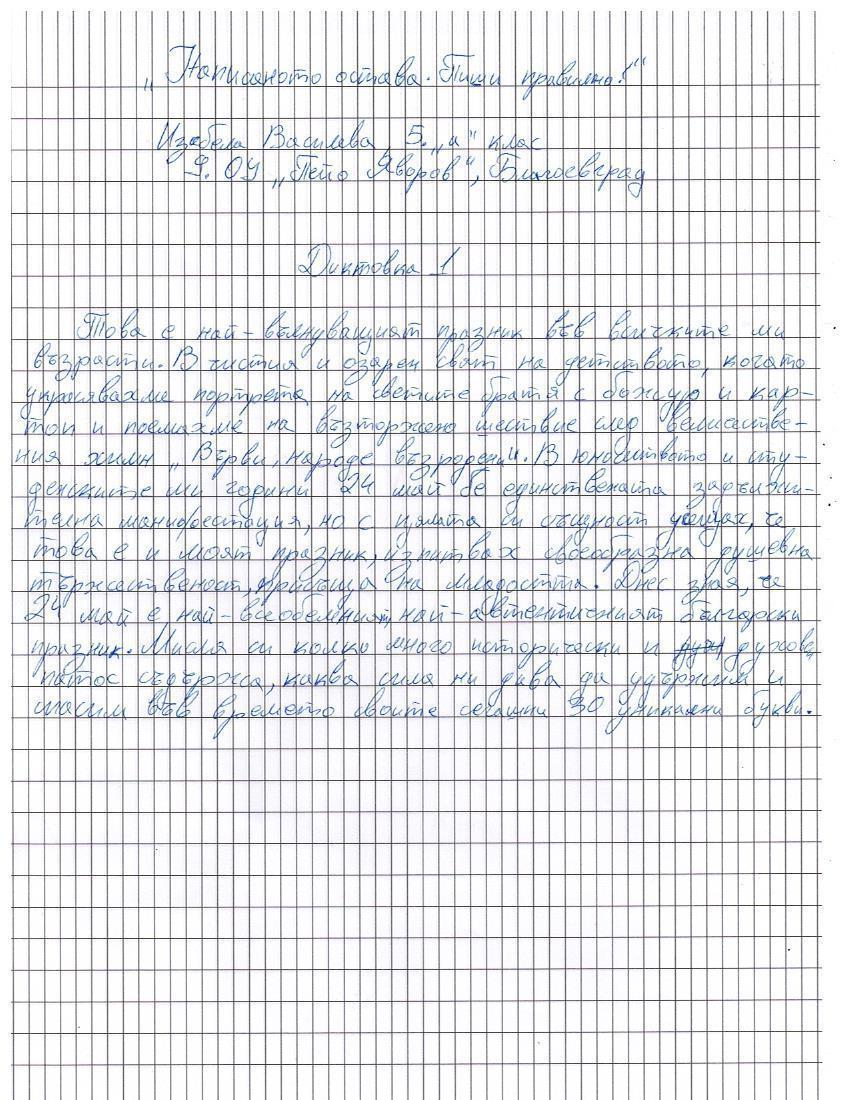 „Написаното остава. Пиши правилно!“
Изабела Василева, 5. „а“ клас
9. ОУ „Пейо Яворов“, Благоевград
Диктовка 1
Това е най-вълнуващият празник във всичките ми
възрасти. В чистия и озарен свят на детството, когато
украсявахме портрета на светите братя с божур и кар-
тон и поемахме на възторжено шествие след величестве-
ния химн „Върви, народе възродени“. В юношеството и сту-
денските ми години 24 май бе единствената задължи-
телна манифестация, но с цялата си същност усещах, че
това е и моят празник, изпитвах своеобразна душевна
тържественост, присъща на младостта. Днес зная, че
24 май е най-всеобемният, най-автентичният български
празник. Мисля си колко много исторически и духовен
патос съдържа, каква сила ни дава да удържим и
спасим във времето своите сегашни 30 уникални букви.